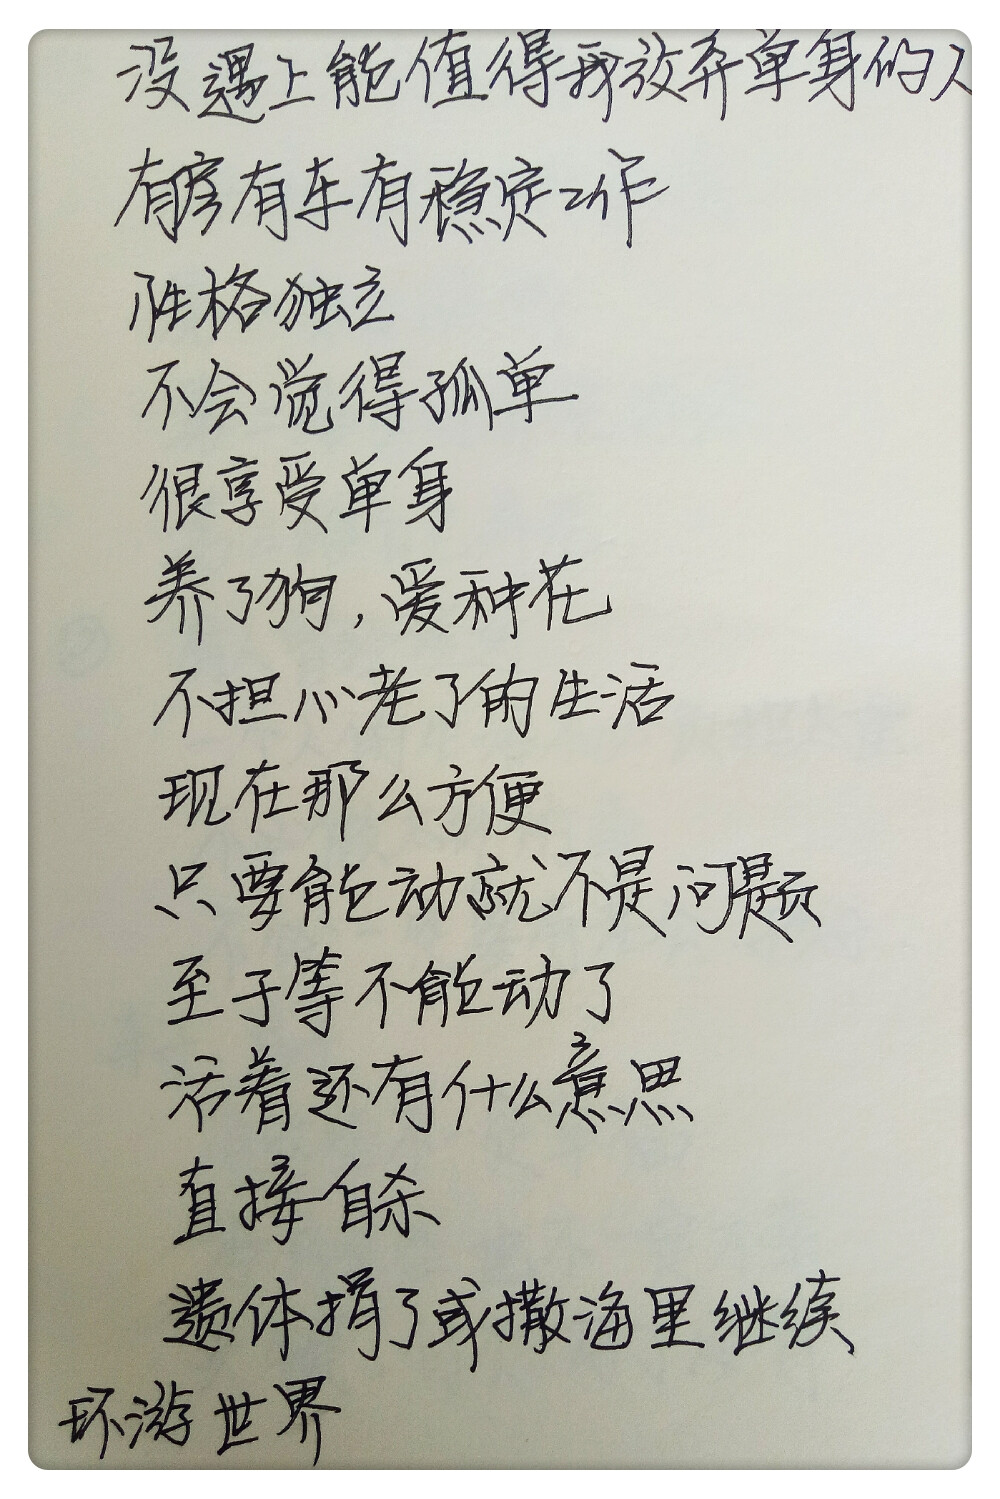 没遇上能值得我放弃单身的人
有房有车有稳定工作
性格独立
不会觉得孤单
很享受单身
养了狗，爱种花
不担心老了的生活
现在那么方便
只要能动就不是问题
至于等不能动了
活着还有什么意思
直接自杀
遗体捐了或撒海里继续
环游世界